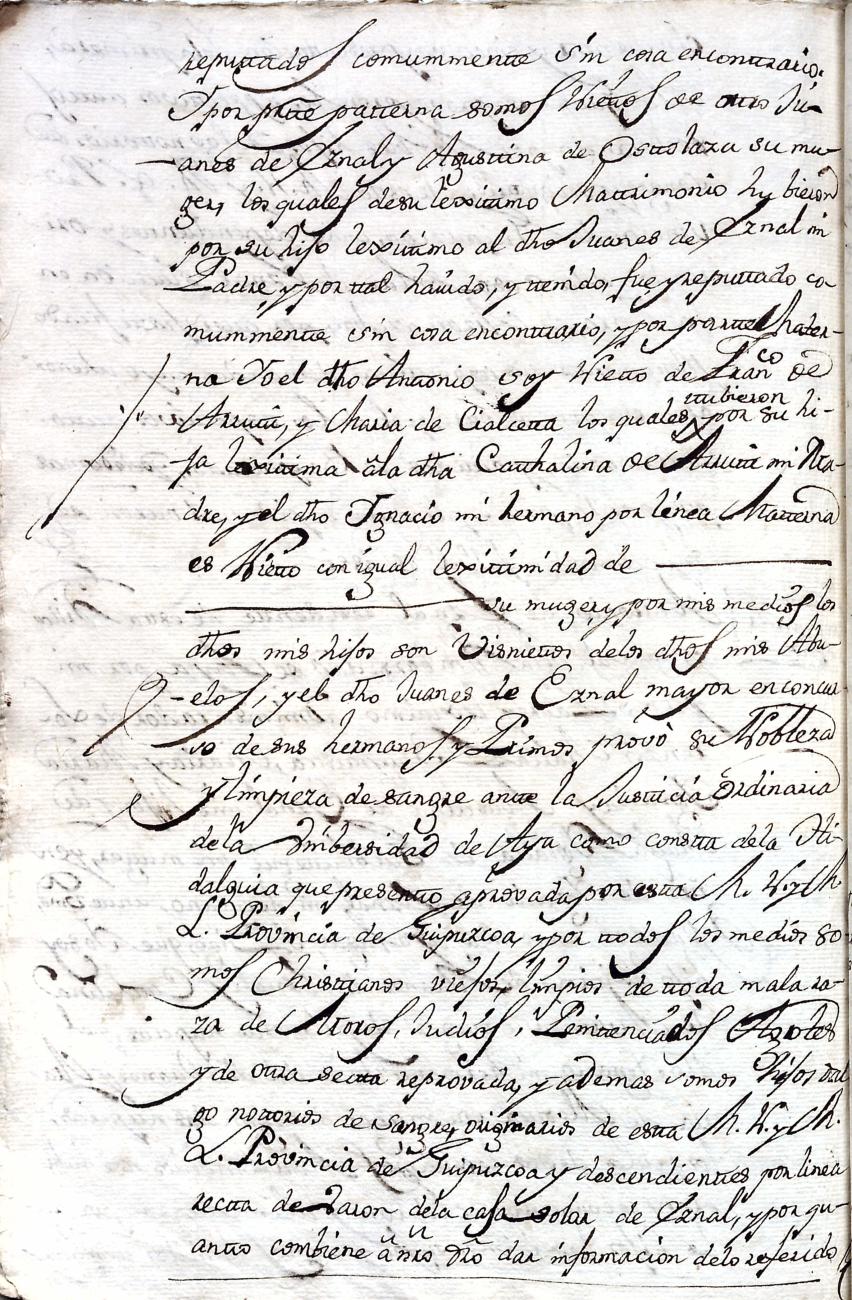 reputtados comummentte sin cosa encontrario.
Y por partte patterna somos Niettos de otro Ju-
anes de Eznal y Agusttina de Osttolaza su mu-
ger, los quales desu lexitimo Mattrimonio hubieron
por su hijo lexitimo al dho Juanes de Eznal mi
Padre, y por ttal havido, y ttenido, fue y reputtado co
mummentte sin cosa encontrario, y por partte Mater-
na Yo el dho Anttonio soy Nietto de Franco de
Arrutti, y Maria de Cialcetta los quales ttubieron por su hi-
ja lexitima âla dha Catthalina de Arrutti mi Ma-
dre, y el dho Ygnacio mi hermano por linea Matterna
es Nietto con igual lexittimidad de
su muger, y por mis medios los
dhos mis hijos son Visniettos delos dhos mis Abu-
elos, y el dho Juanes de Eznal mayor en concur
so de sus hermanos, y Primos provò su Nobleza
y limpieza de sangre antte la Justticia Ordinaria
de la Unibersidad de Aya como constta dela Hi-
dalguia que presentto aprovada por estta M. N. y M.
L. Provincia de Guipuzcoa, y por ttodos los medios so
mos Christtianos viejos, limpios de ttoda mala ra-
za de Moros, Judios, Penitenciados Agotes
y de otra sectta reprovada, y ademas somos hijos dal
go nottorios de sangre, originarios de estta M. N. y M.
L. Provincia de Guipuzcoa y descendienttes por linea
rectta de Varon dela casa solar de Eznal, y por qu-
antto combiene â nro dro dar informacion delo referido